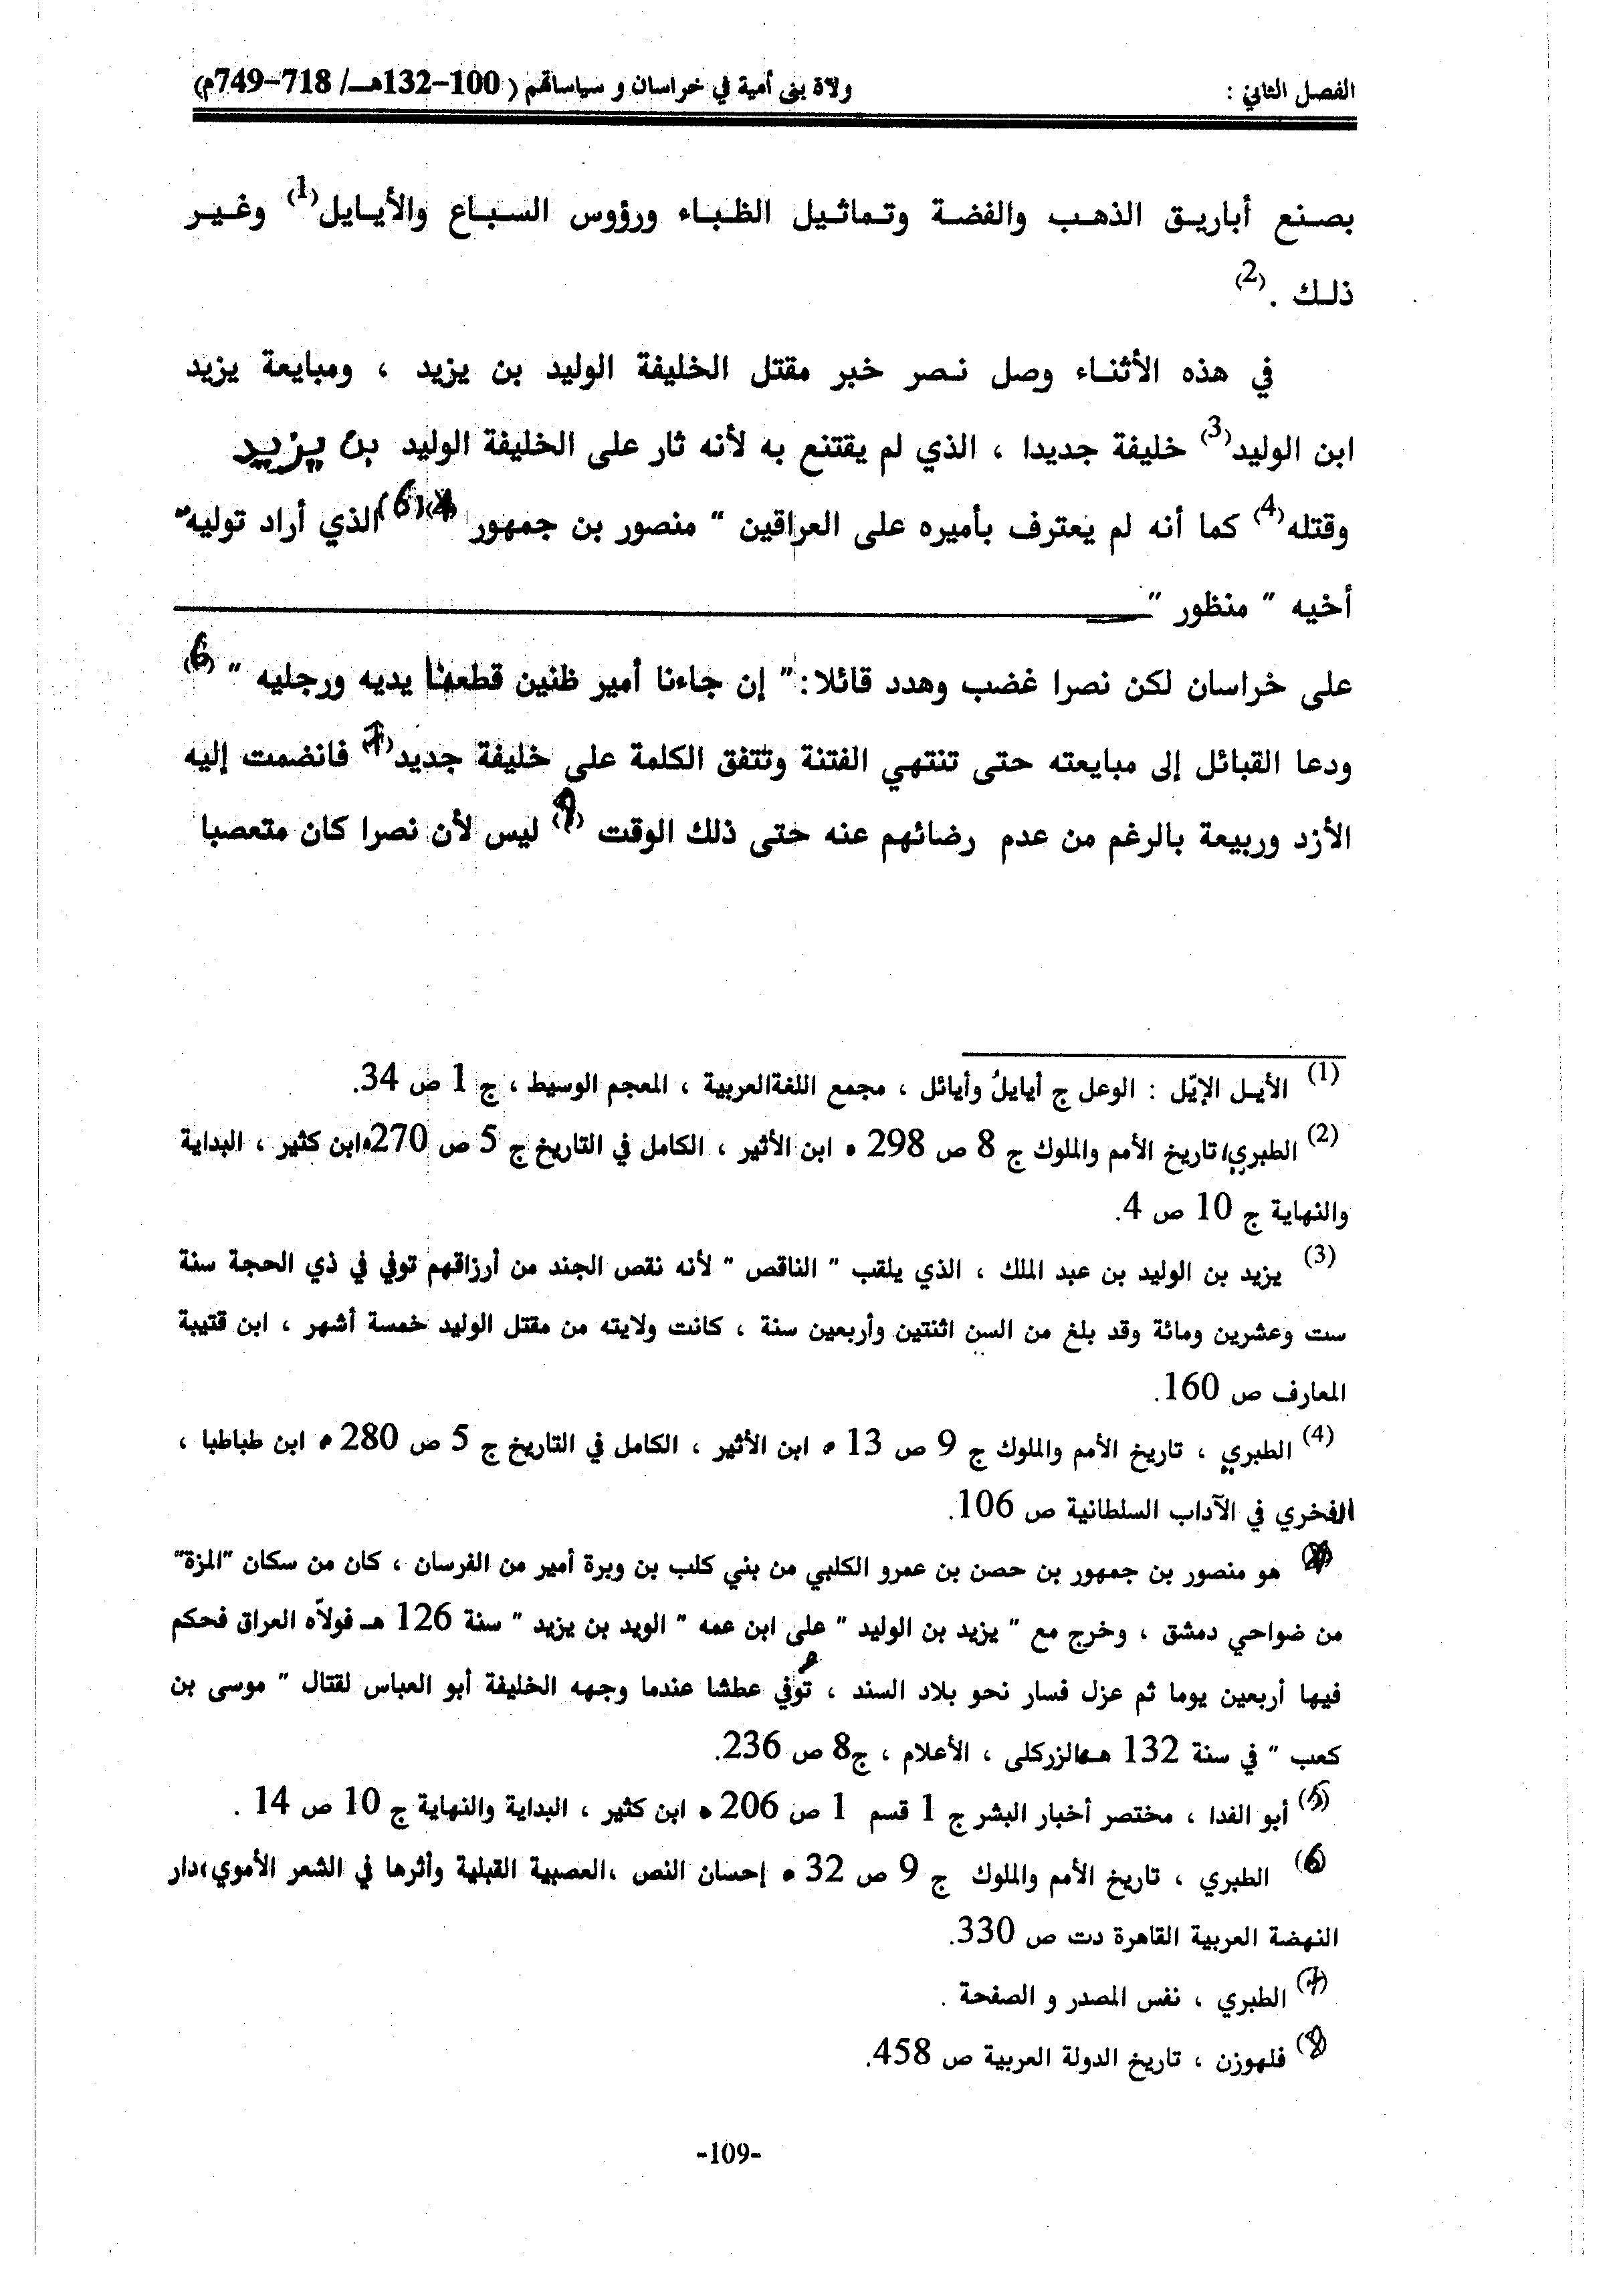 الفصل الثاني : ولاة بنى أمية في خراسان و سياساتهم ( 100-132هـ/ 718-749م)
بصنع أباريق الذهب والفضة وتماثيل الظباء ورؤوس السباع والأيايل(1) وغير
ذلك .(2)
في هذه الأثناء وصل نصر خبر مقتل الخليفة الوليد بن يزيد ، ومبايعة يزيد
ابن الوليد(3) خليفة جديدا ، الذي لم يقتنع به لأنه ثار على الخليفة الوليد بن يزيد
وقتله(4) كما أنه لم يعترف بأميره على العراقين " منصور بن جمهور (6) الذي أراد توليه
أخيه " منظور "
على خراسان لكن نصرا غضب وهدد قائلا: " إن جاءنا أمير ظنين قطعنا يديه ورجليه " (6)
ودعا القبائل إلى مبايعته حتى تنتهي الفتنة وتتفق الكلمة على خليفة جديد(7) فانضمت إليه
الأزد وربيعة بالرغم من عدم رضائهم عنه حتى ذلك الوقت ليس لأن نصرا كان متعصبا
(1) الأيل الإيّل : الوعل ج أيايلُ وأيائل ، مجمع اللغةالعربية ، المعجم الوسيط ، ج 1 ص 34.
(2) الطبري، تاريخ الأمم والملوك ج 8 ص 298 ، ابن الأثير ، الكامل في التاريخ ج 5 ص 270،ابن كثير ، البداية
والنهاية ج 10 ص 4.
(3) يزيد بن الوليد بن عبد الملك ، الذي يلقب " الناقص " لأنه نقص الجند من أرزاقهم توفي في ذي الحجة سنة
ست وعشرين ومائة وقد بلغ من السن اثنتين وأربعين سنة ، كانت ولايته من مقتل الوليد خمسة أشهر ، ابن قتيبة
المعارف ص 160.
(4) الطبري ، تاريخ الأمم والملوك ج 9 ص 13 ، ابن الأثير ، الكامل في التاريخ ج 5 ص 280 ، ابن طباطبا ،
الفخري في الآداب السلطانية ص 106.
هو منصور بن جمهور بن حصن بن عمرو الكلبي من بني كلب بن وبرة أمير من الفرسان ، كان من سكان "المزة"
من ضواحي دمشق ، وخرج مع " يزيد بن الوليد " على ابن عمه " الويد بن يزيد " سنة 126 هـ فولاّه العراق فحكم
فيها أربعين يوما ثم عزل فسار نحو بلاد السند ، توفي عطشا عندما وجهه الخليفة أبو العباس لقتال " موسى بن
كعب " في سنة 132 هـ،الزركلى ، الأعلام ، ج8 ص 236.
(5) أبو الفدا ، مختصر أخبار البشر ج 1 قسم 1 ص 206 ، ابن كثير ، البداية والنهاية ج 10 ص 14 .
(6) الطبري ، تاريخ الأمم والملوك ج 9 ص 32 ، إحسان النص ،العصبية القبلية وأثرها في الشعر الأموي،دار
النهضة العربية القاهرة دت ص 330.
(7) الطبري ، نفس المصدر و الصفحة .
(8) فلهوزن ، تاريخ الدولة العربية ص 458.
-109-